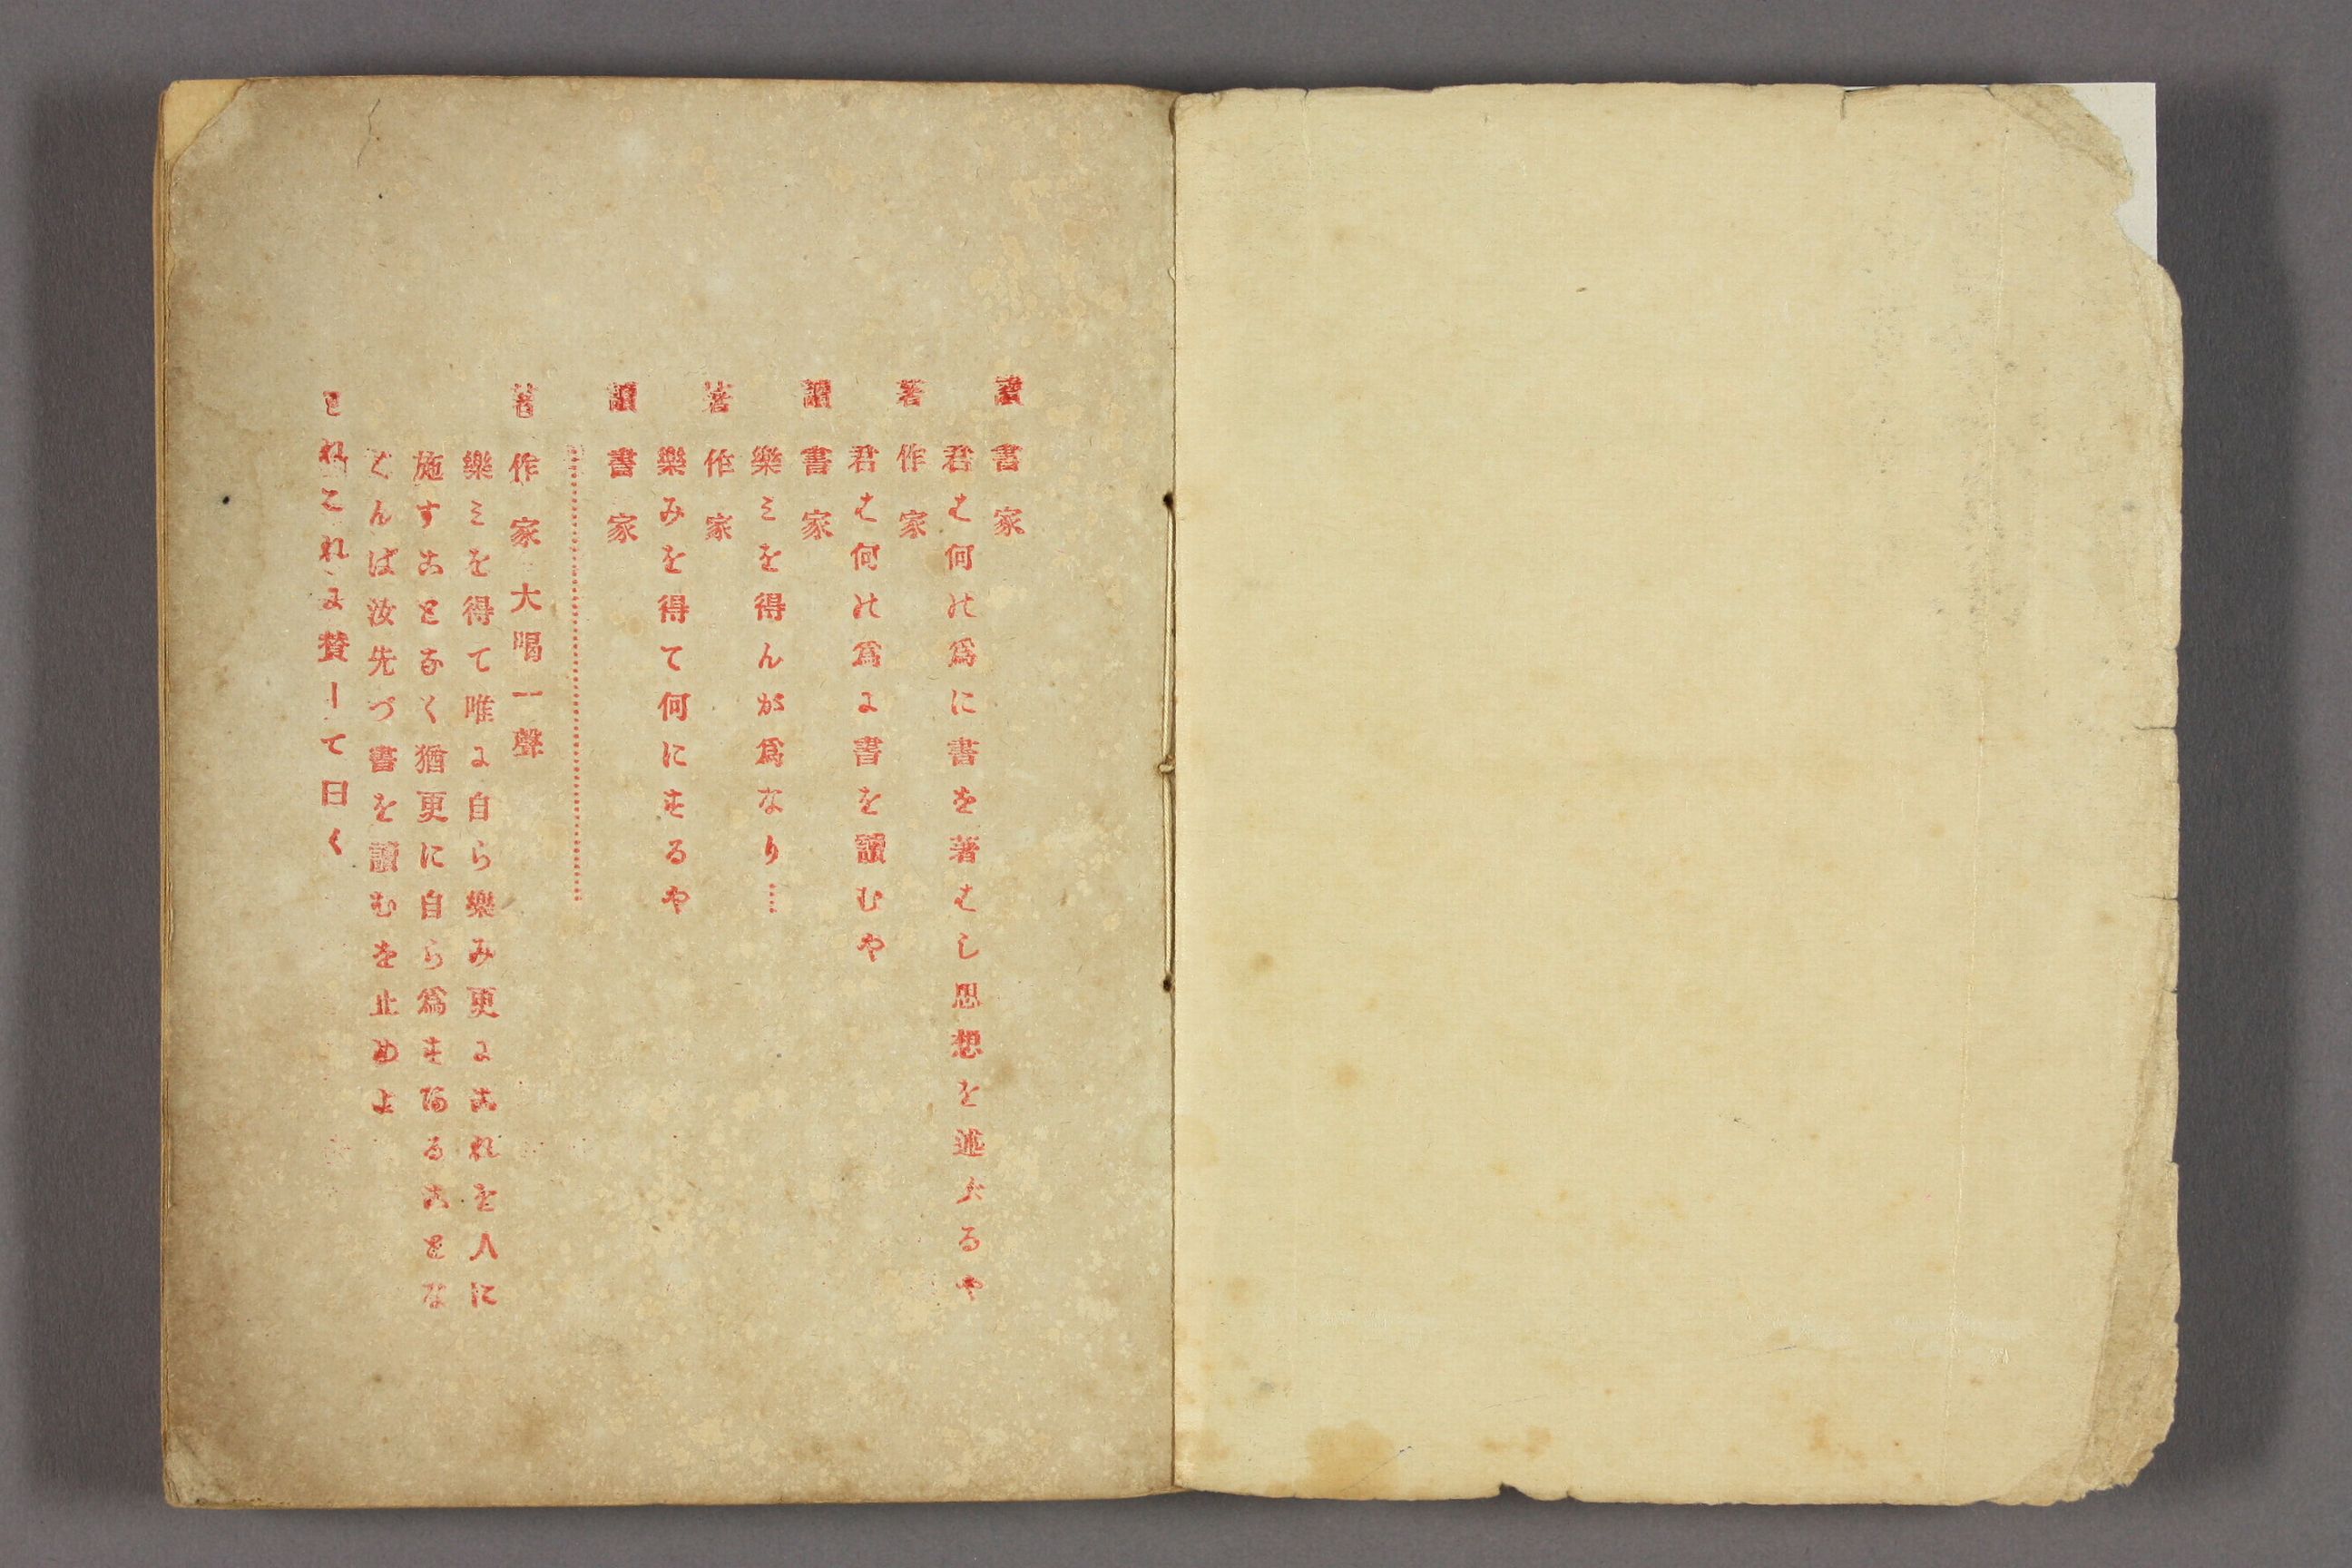 讀書家
君は何の爲に書を著はし思想を述ぶるや
著作家
君は何の爲に書を讀むや
讀書家
樂ミを得んが爲なり…
著作家
樂みを得て何にするや
讀書家
…………………………
著作家大喝一聲
樂ミを得て唯に自ら樂み更にこれを人に
施すことなく猶更に自ら爲す
る ことな
くんば汝先づ書を讀むを止めよ
われこれに賛して曰く